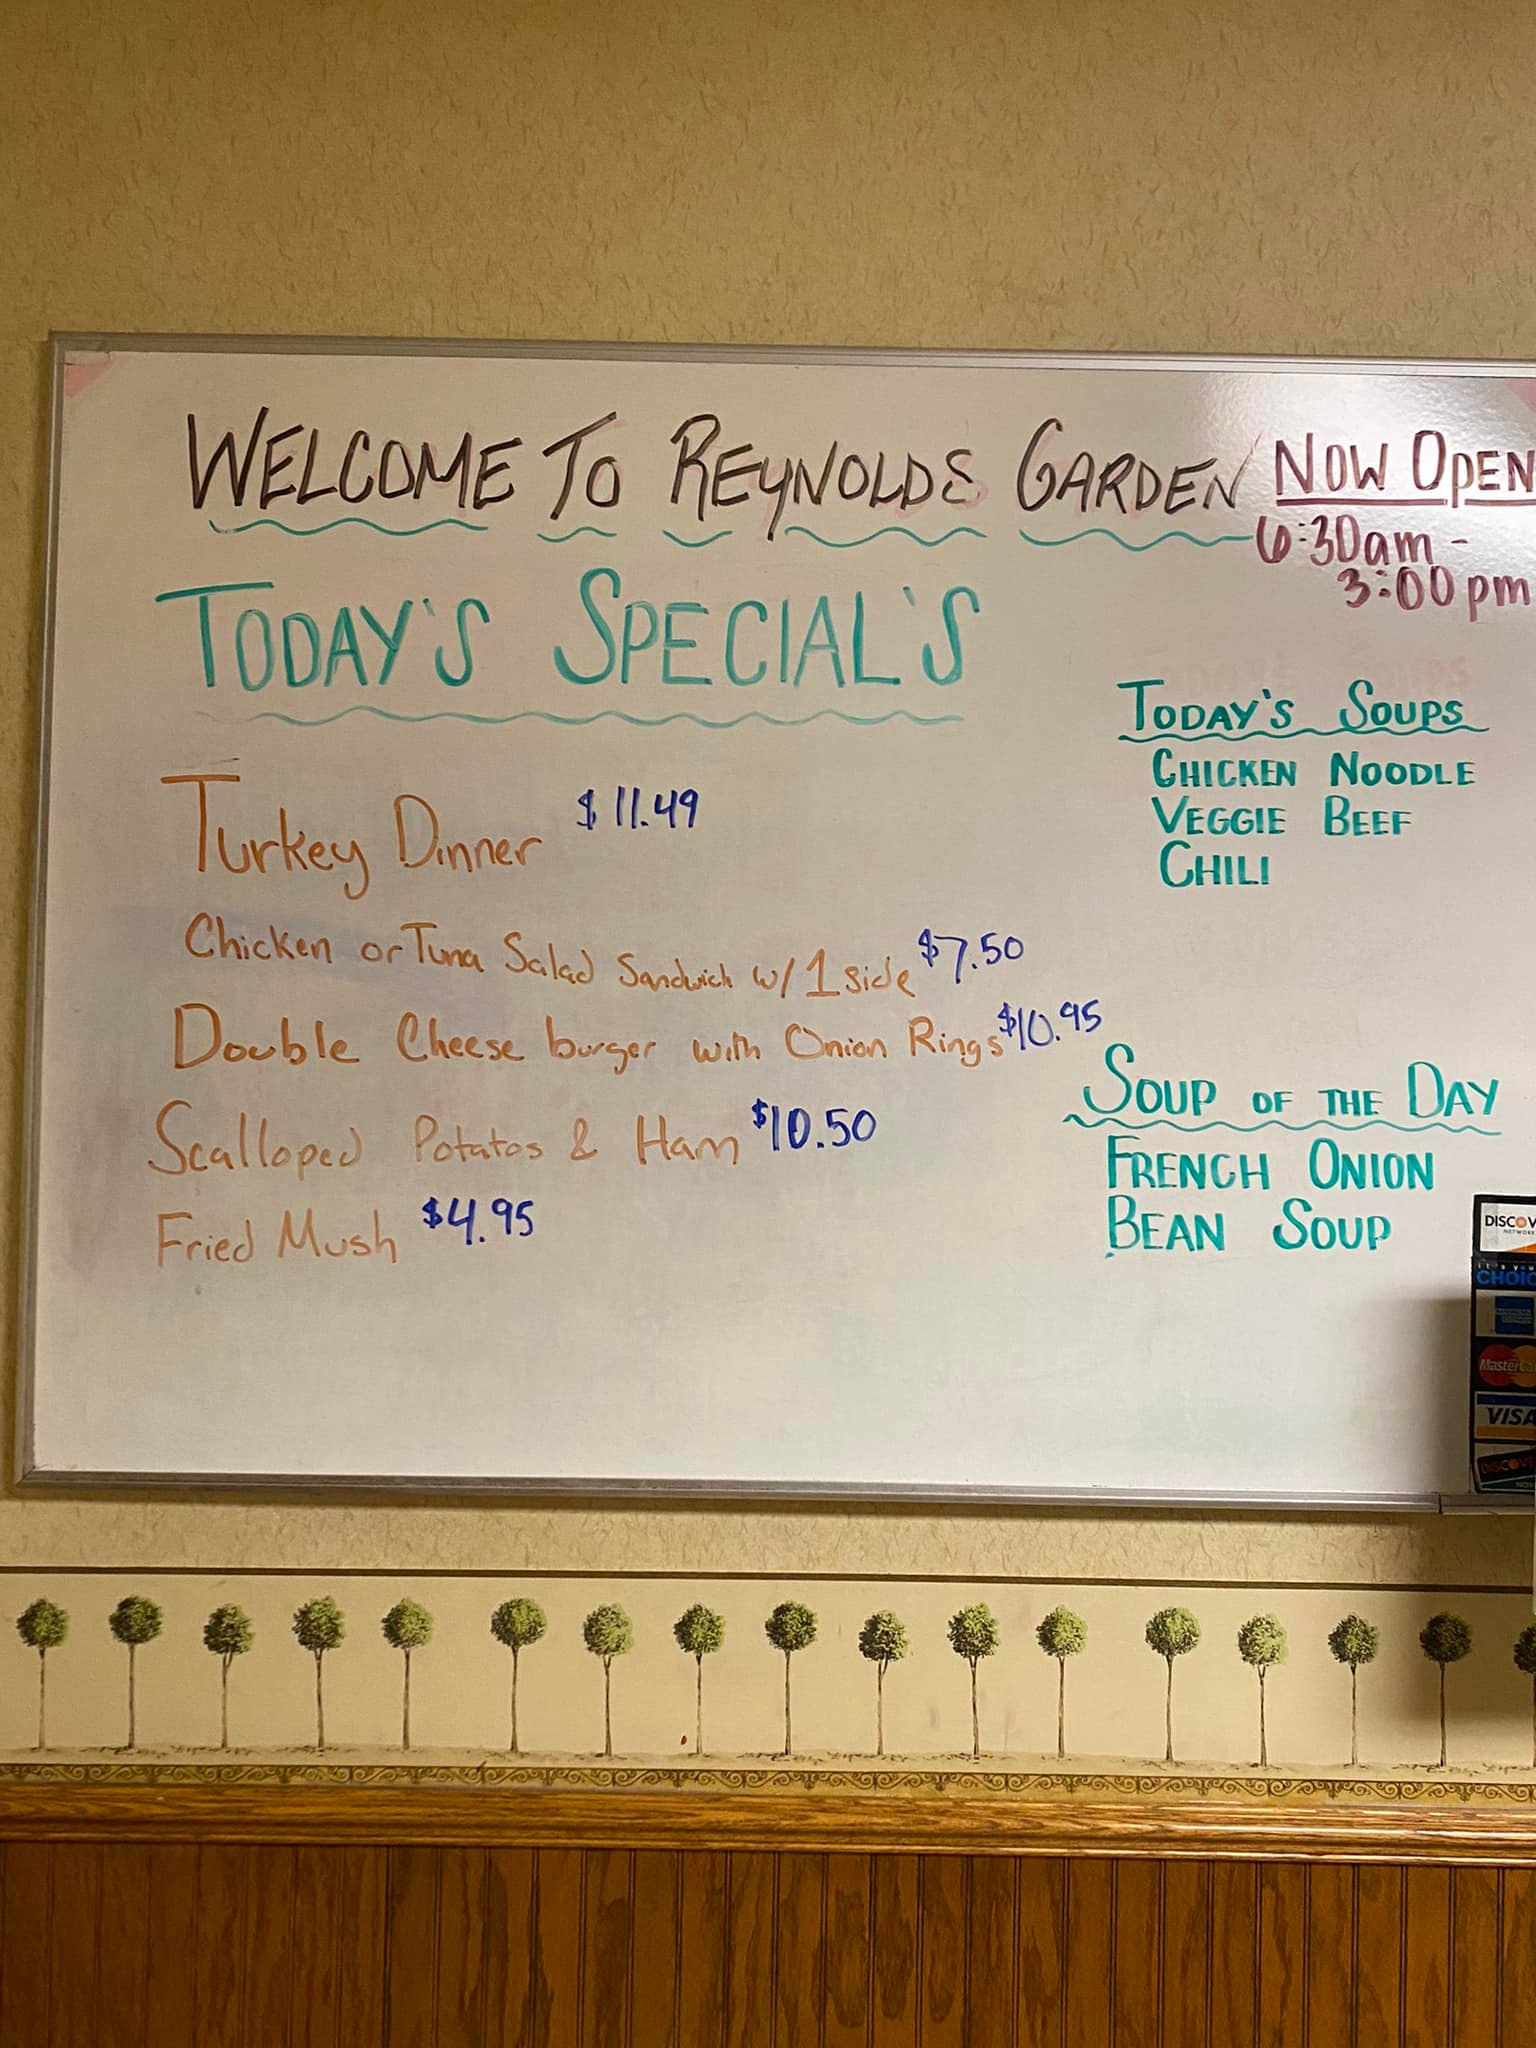 WELCOME TO REYNOLDS GARDEN
NOW OPEN
6:30am -
3:00pm
TODAY'S SPECIAL'S
Turkey Dinner $11.49
Chicken or Tuna Salad Sandwich w/ 1 side $7.50
Double Cheese burger with Onion Rings $10.95
Scalloped Potatos & Ham $10.50
Fried Mush $4.95
TODAY'S SOUPS
CHICKEN NOODLE
VEGGIE BEEF
CHILI
SOUP OF THE DAY
FRENCH ONION
BEAN SOUP
DISCOV
NETWORK
CHOIC
MasterCa
VISA
DISCOVE